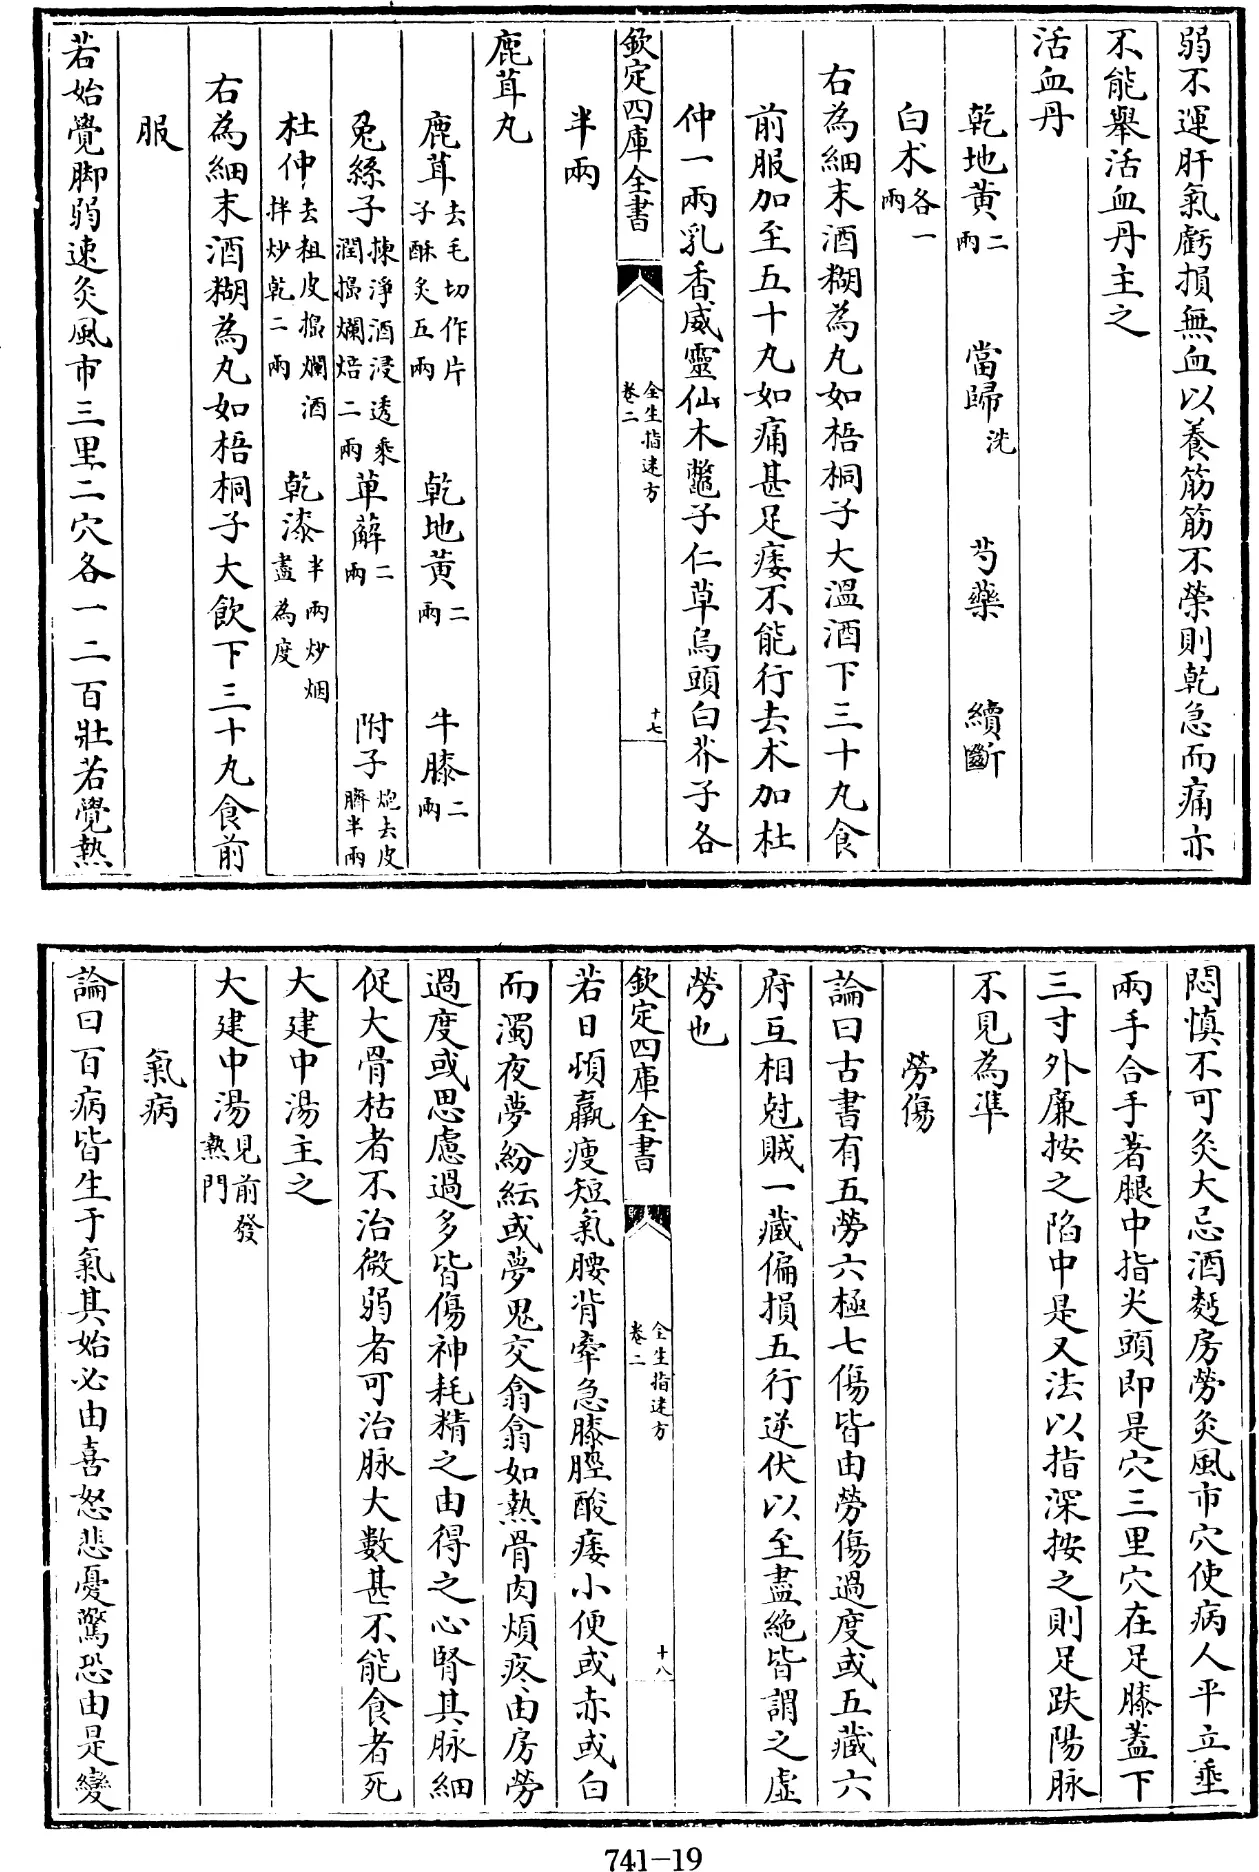 弱不運肝氣虧損無血以養筋筋不榮則乾急而痛亦
不能舉活血丹主之
活血丹
乾地黄二兩 當歸洗 芍藥 續斷
白术各一兩
右為細末酒糊為丸如梧桐子大溫酒下三十丸食
前服加至五十丸如痛甚足痿不能行去术加杜
仲一兩乳香威靈仙木鼈子仁草烏頭白芥子各
欽定四庫全書
全生指迷方
卷二
十七
半兩
鹿茸丸
鹿茸去毛切作片子酥炙五兩 乾地黄二兩 牛膝二兩
兔絲子揀淨酒浸透乘潤搗爛焙二兩 萆薢二兩 附子炮去皮臍半兩
杜仲去粗皮搗爛酒拌炒乾二兩 乾漆半兩炒烟盡為度
右為細末酒糊為丸如梧桐子大飲下三十丸食前
服
若始覺脚弱速灸風市三里二穴各一二百壯若覺熱
悶慎不可灸大忌酒麪房勞灸風市穴使病人平立垂
兩手合手著腿中指尖頭即是穴三里穴在足膝蓋下
三寸外廉按之陷中是又法以指深按之則足趺陽脉
不見為準
勞傷
論曰古書有五勞六極七傷皆由勞傷過度或五藏六
府互相尅賊一藏偏損五行逆伏以至盡絶皆謂之虛
勞也
欽定四庫全書
全生指迷方
卷二
十八
若日頓羸瘦短氣腰背牽急膝脛酸痿小便或赤或白
而濁夜夢紛紜或夢鬼交翕翕如熱骨肉煩疼由房勞
過度或思慮過多皆傷神耗精之由得之心腎其脉細
促大骨枯者不治微弱者可治脉大數甚不能食者死
大建中湯主之
大建中湯見前發熱門
氣病
論曰百病皆生于氣其始必由喜怒悲憂驚恐由是變
741-19